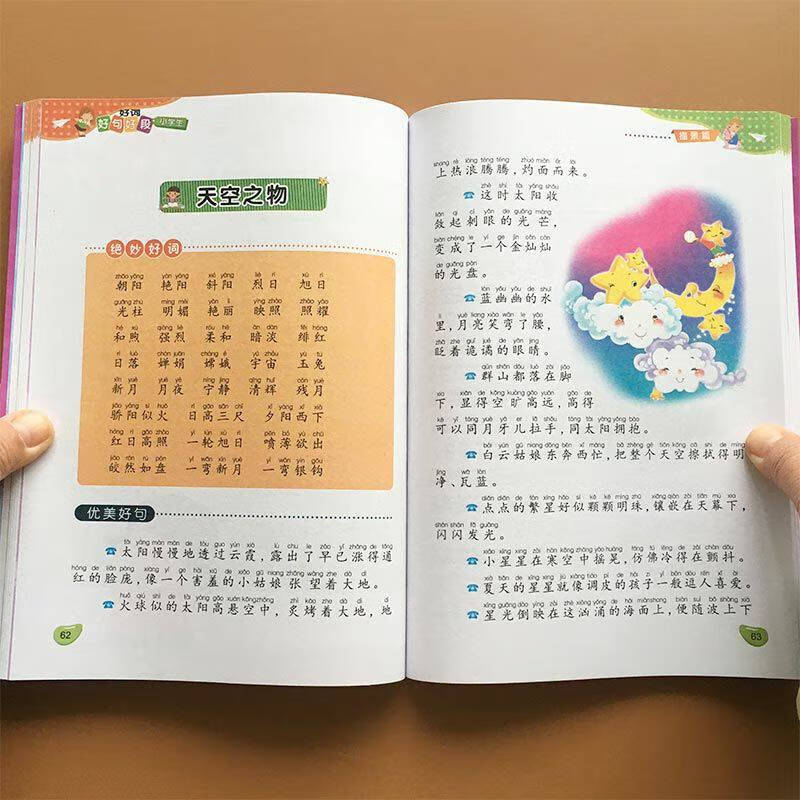 好词
好句好段 小学生
天空之物
绝妙好词
zhāo yáng yàn yáng xié yáng liè rì xù rì
朝阳 艳阳 斜阳 烈日 旭日
guāng zhù míng mèi yàn lì yìng zhào zhào yào
光柱 明媚 艳丽 映照 照耀
hé xù qiáng liè róu hé àn dàn fēi hóng
和煦 强烈 柔和 暗淡 绯红
rì luò chán juān cháng é yǔ zhòu yù tù
日落 婵娟 嫦娥 宇宙 玉兔
xīn yuè yuè yè níng jìng qīng huī cán yuè
新月 月夜 宁静 清辉 残月
jiāo yáng sì huǒ rì gāo sān chǐ xī yáng xī xià
骄阳似火 日高三尺 夕阳西下
hóng rì gāo zhào yì lún xù rì pēn bó yù chū
红日高照 一轮旭日 喷薄欲出
jiǎo rán rú pán yì wān xīn yuè yì wān yín gōu
皎然如盘 一弯新月 一弯银钩
优美好句
tài yáng màn màn de tòu guò yún xiá lù chū le zǎo yǐ zhàng de tōng
太阳慢慢地透过云霞，露出了早已涨得通
hóng de liǎn páng xiàng yí gè hài xiū de xiǎo gū niang zhāng wàng zhe dà dì
红的脸庞，像一个害羞的小姑娘张望着大地。
huǒ qiú shì de tài yáng gāo xuán kōng zhōng zhì kǎo zhe dà dì dì
火球似的太阳高悬空中，炙烤着大地，地
62
描景篇
shang rè làng téng téng zhuó miàn ér lái
上热浪腾腾，灼面而来。
zhè shí tài yáng shōu
这时太阳收
liǎn qǐ cì yǎn de guāng máng
敛起刺眼的光芒，
biàn chéng le yí gè jīn càn càn
变成了一个金灿灿
de guāng pán
的光盘。
lán yōu yōu de shuǐ
蓝幽幽的水
lǐ yuè liang xiào wān le yāo
里，月亮笑弯了腰，
zhǎ zhe guǐ jué de yǎn jing
眨着诡谲的眼睛。
qún shān dōu luò zài jiǎo
群山都落在脚
xià xiǎn de kōng kuàng gāo yuǎn gāo de
下，显得空旷高远 高得
kě yǐ tóng yuè yá er lā shǒu tóng tài yáng yōng bào
可以同月牙儿拉手，同太阳拥抱。
bái yún gū niang dōng bēn xī máng bǎ zhěng gè tiān kōng cā shì de míng
白云姑娘东奔西忙，把整个天空擦拭得明
jìng wǎ lán
净、瓦蓝。
diǎn diǎn de fán xīng hǎo sì kē kē míng zhū xiāng qiàn zài tiān mù xià
点点的繁星好似颗颗明珠，镶嵌在天幕下，
shǎn shǎn fā guāng
闪闪发光。
xiǎo xīng xing zài hán kōng zhōng yáo huàng fǎng fú lěng de zài chàn dǒu
小星星在寒空中摇晃，仿佛冷得在颤抖。
xià tiān de xīng xing jiù xiàng tiáo pí de hái zi yì bān dòu rén xǐ ài
夏天的星星就像调皮的孩子一般逗人喜爱。
xīng guāng dào yìng zài zhè xiōng yǒng de hǎi miàn shang biàn suí bō shàng xià
星光倒映在这汹涌的海面上，便随波上下
63